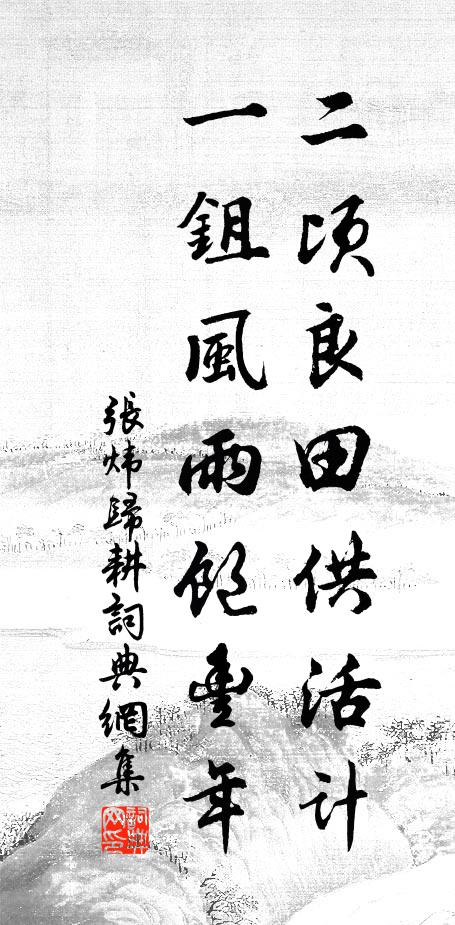 二頃良田供活計
一鉏風雨飽豐年
張煒歸耕詞典網集